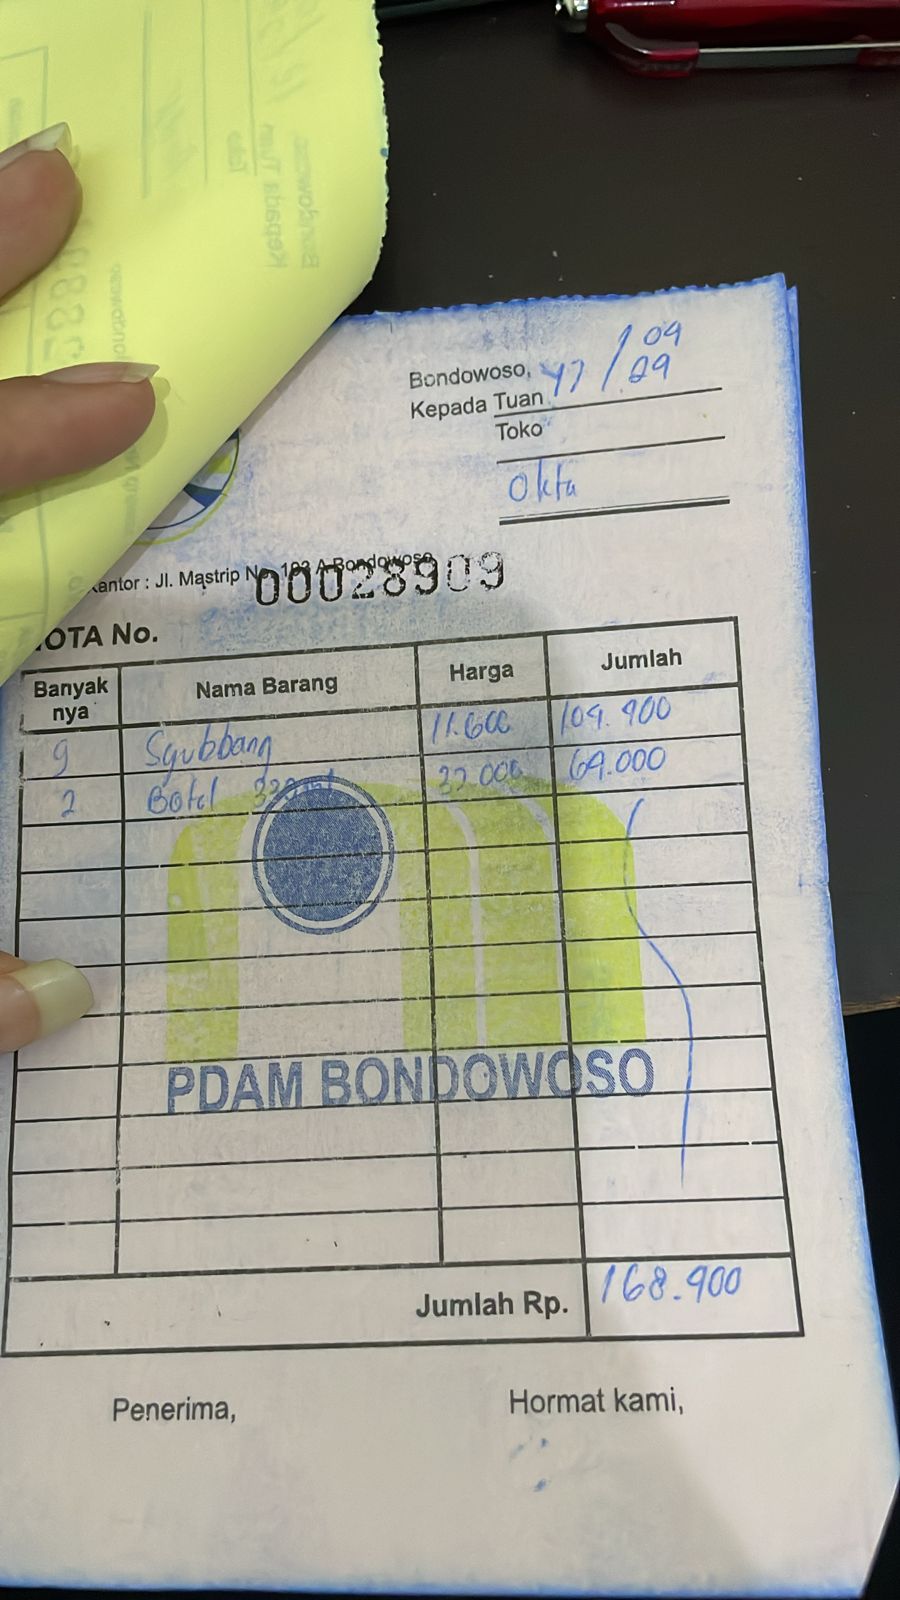 Bondowoso, 17 / 09
29
Kepada Tuan
Toko
Okta
Kantor : Jl. Mastrip No. 193 A Bondowoso
00028909
NOTA No.
Banyak nya Nama Barang Harga Jumlah
9 11.600 104.900
2 Botol 330 ml 32.000 64.000
PDAM BONDOWOSO
Jumlah Rp. 168.900
Penerima, Hormat kami,